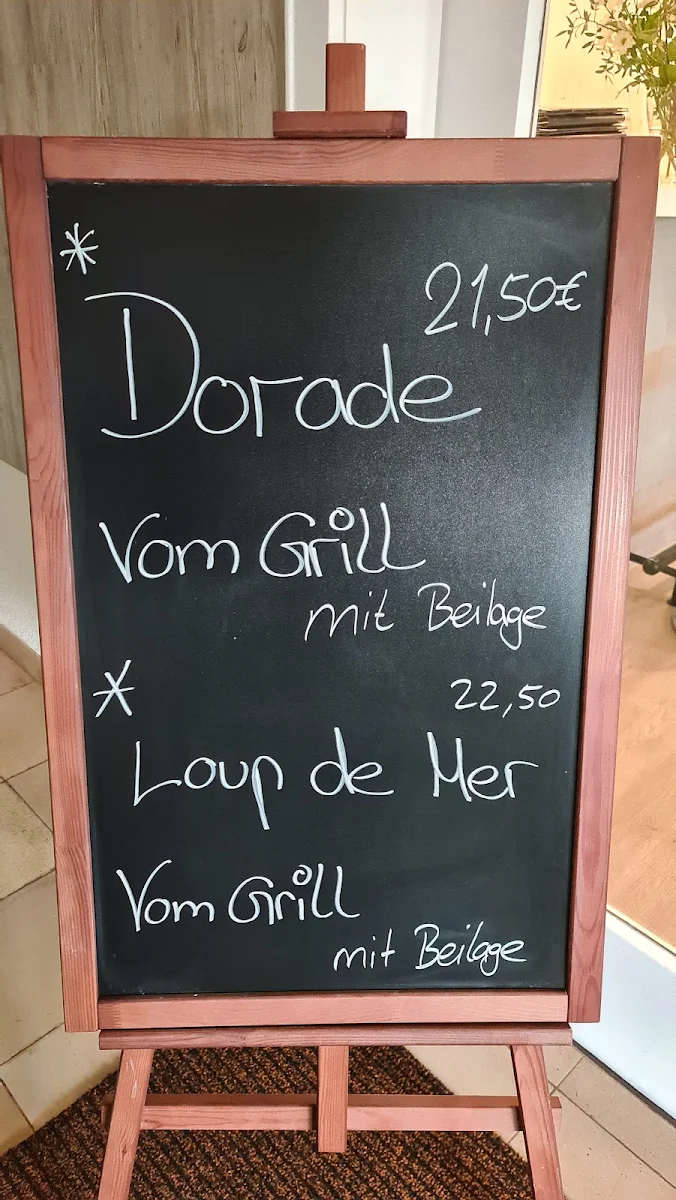 * 21,50€
Dorade
Vom Grill
mit Beilage
* 22,50
Loup de Mer
Vom Grill
mit Beilage